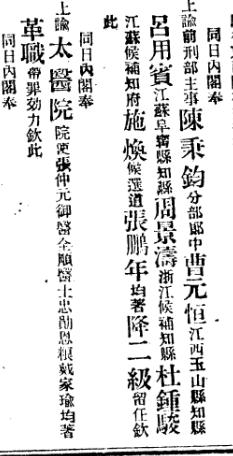 同日內閣奉
上諭前刑部主事陳秉鈞分部郎中曹元恒江西玉山縣知縣
呂用賓江蘇阜寧縣知縣周景濤浙江候補知縣杜鍾駿
江蘇候補知府施煥候選道張鵬年均著降二級留任欽
此
同日內閣奉
上諭太醫院院使張仲元御醫全順醫士忠勛恩糧戴家瑜均著
革職帶罪効力欽此
同日內閣奉